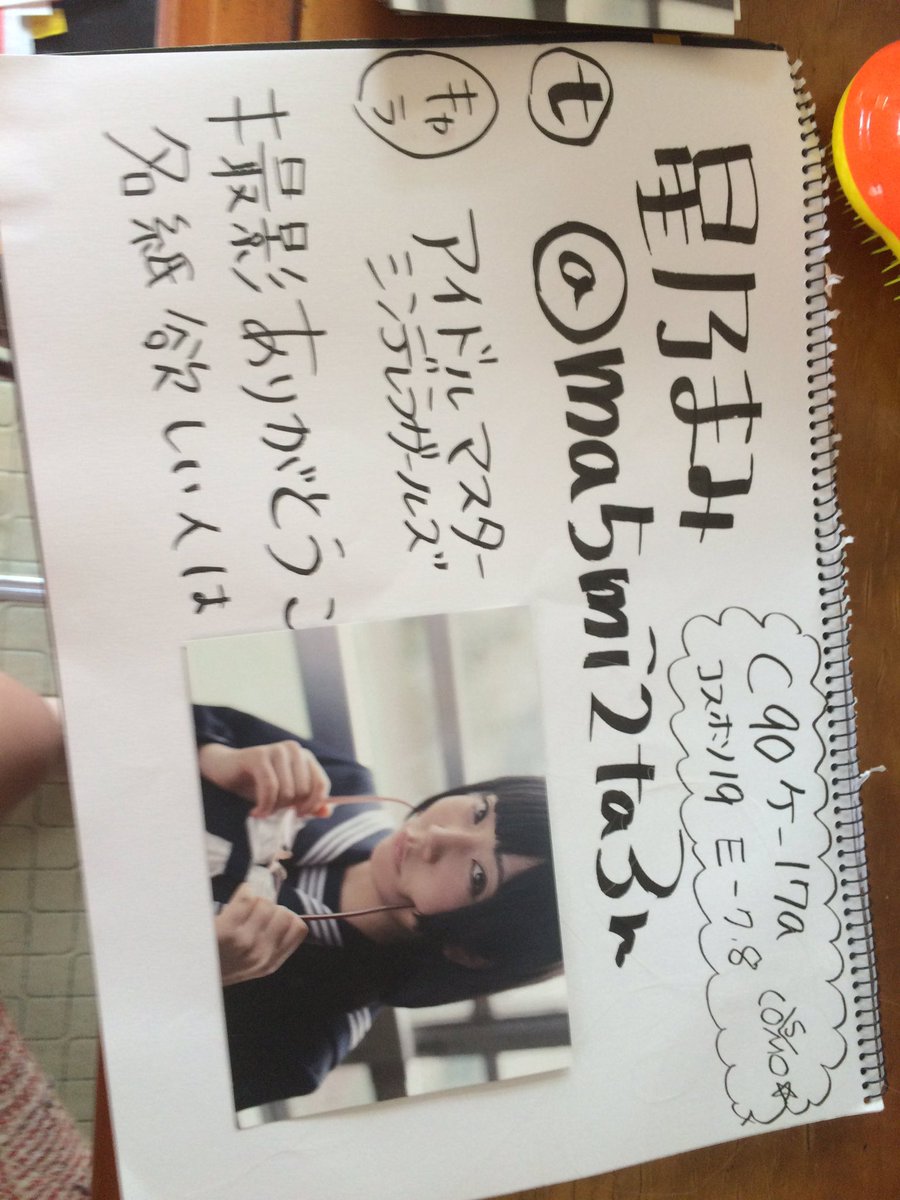 星乃まみ
t @ma5mi2ta3n
キャラ
アイドルマスター
シンデレラガールズ
撮影ありがとうご
名紙欲しい人は
C90 ケ-17a
コスホリ19 E-7.8
COSMO☆